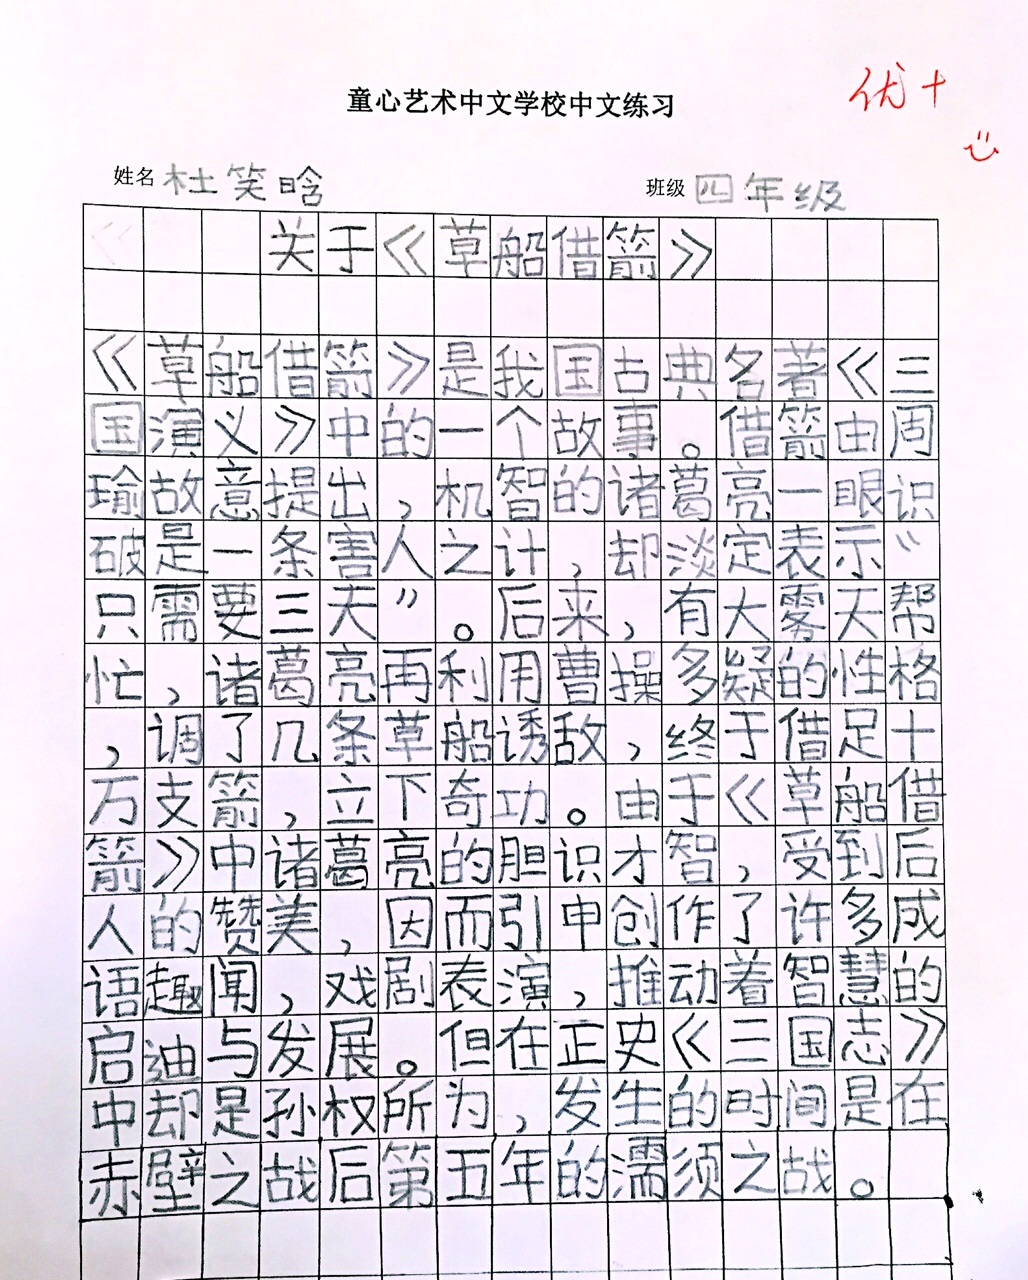 童心艺术中文学校中文练习
优+
姓名 杜笑晗 班级 四年级
关于《草船借箭》
《草船借箭》是我国古典名著《三
国演义》中的一个故事。借箭由周
瑜故意提出,机智的诸葛亮一眼识
破是一条害人之计,却淡定表示“
只需要三天”。后来,有大雾天帮
忙,诸葛亮再利用曹操多疑的性格
,调了几条草船诱敌,终于借足十
万支箭,立下奇功。由于《草船借
箭》中诸葛亮的胆识才智,受到后
人的赞美,因而引申创作了许多成
语趣闻,戏剧表演,推动着智慧的
启迪与发展。但在正史《三国志》
中却是孙权所为,发生的时间是在
赤壁之战后第五年的濡须之战。